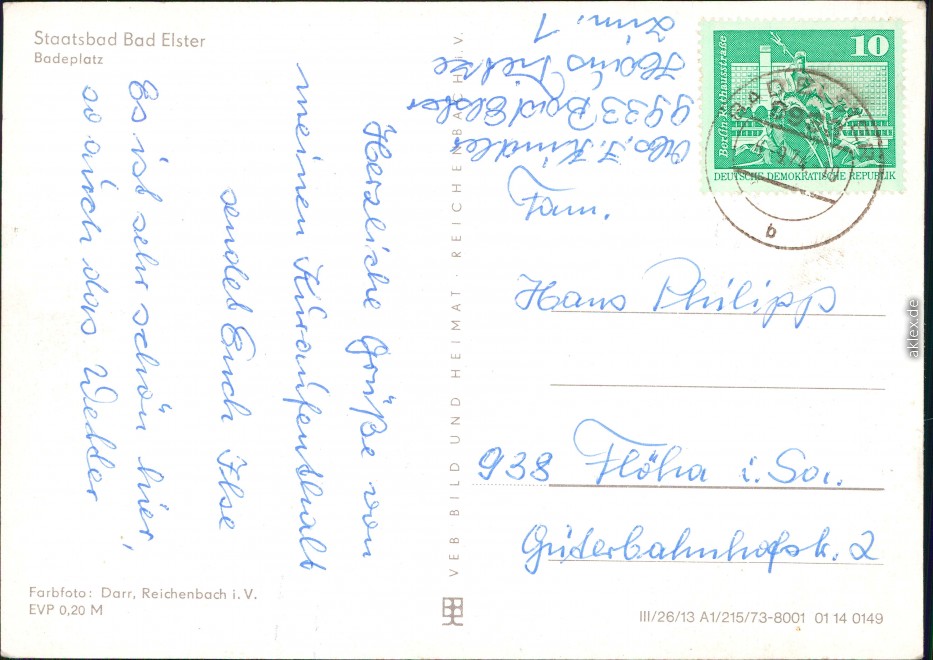 Staatsbad Bad Elster
Badeplatz
Herzliche Grüße von
meinen Kuraufenthalt
sendet Euch Ilse
Es ist sehr schön hier,
so auch das Wetter
Farbfoto: Darr, Reichenbach i. V.
EVP 0,20 M
VEB BILD UND HEIMAT · REICHENBACH I. V.
Abs. I. Kindler
9933 Bad Elster
Haus
Zim. 1
10
Berlin Rathausstraße
DEUTSCHE DEMOKRATISCHE REPUBLIK
BAD ELSTER
b
Fam.
Hans Philipp
938 Flöha i. Sa.
Güterbahnhofstr. 2
III/26/13 A1/215/73-8001 01 14 0149
aklex.de